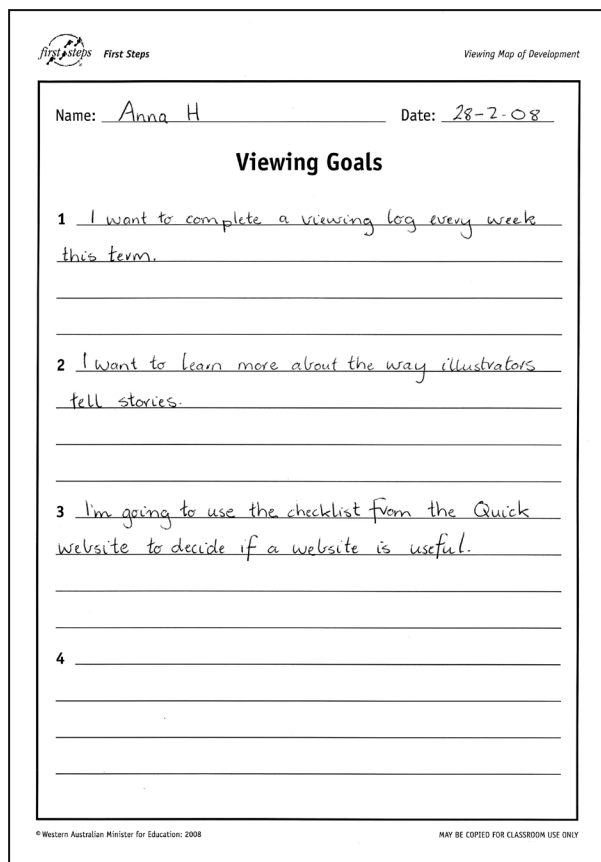 first steps First Steps Viewing Map of Development
Name: Anna H Date: 28-2-08
Viewing Goals
1 I want to complete a viewing log every week
this term.
2 I want to learn more about the way illustrators
tell stories.
3 I'm going to use the checklist from the Quick
website to decide if a website is useful.
4
© Western Australian Minister for Education: 2008 MAY BE COPIED FOR CLASSROOM USE ONLY